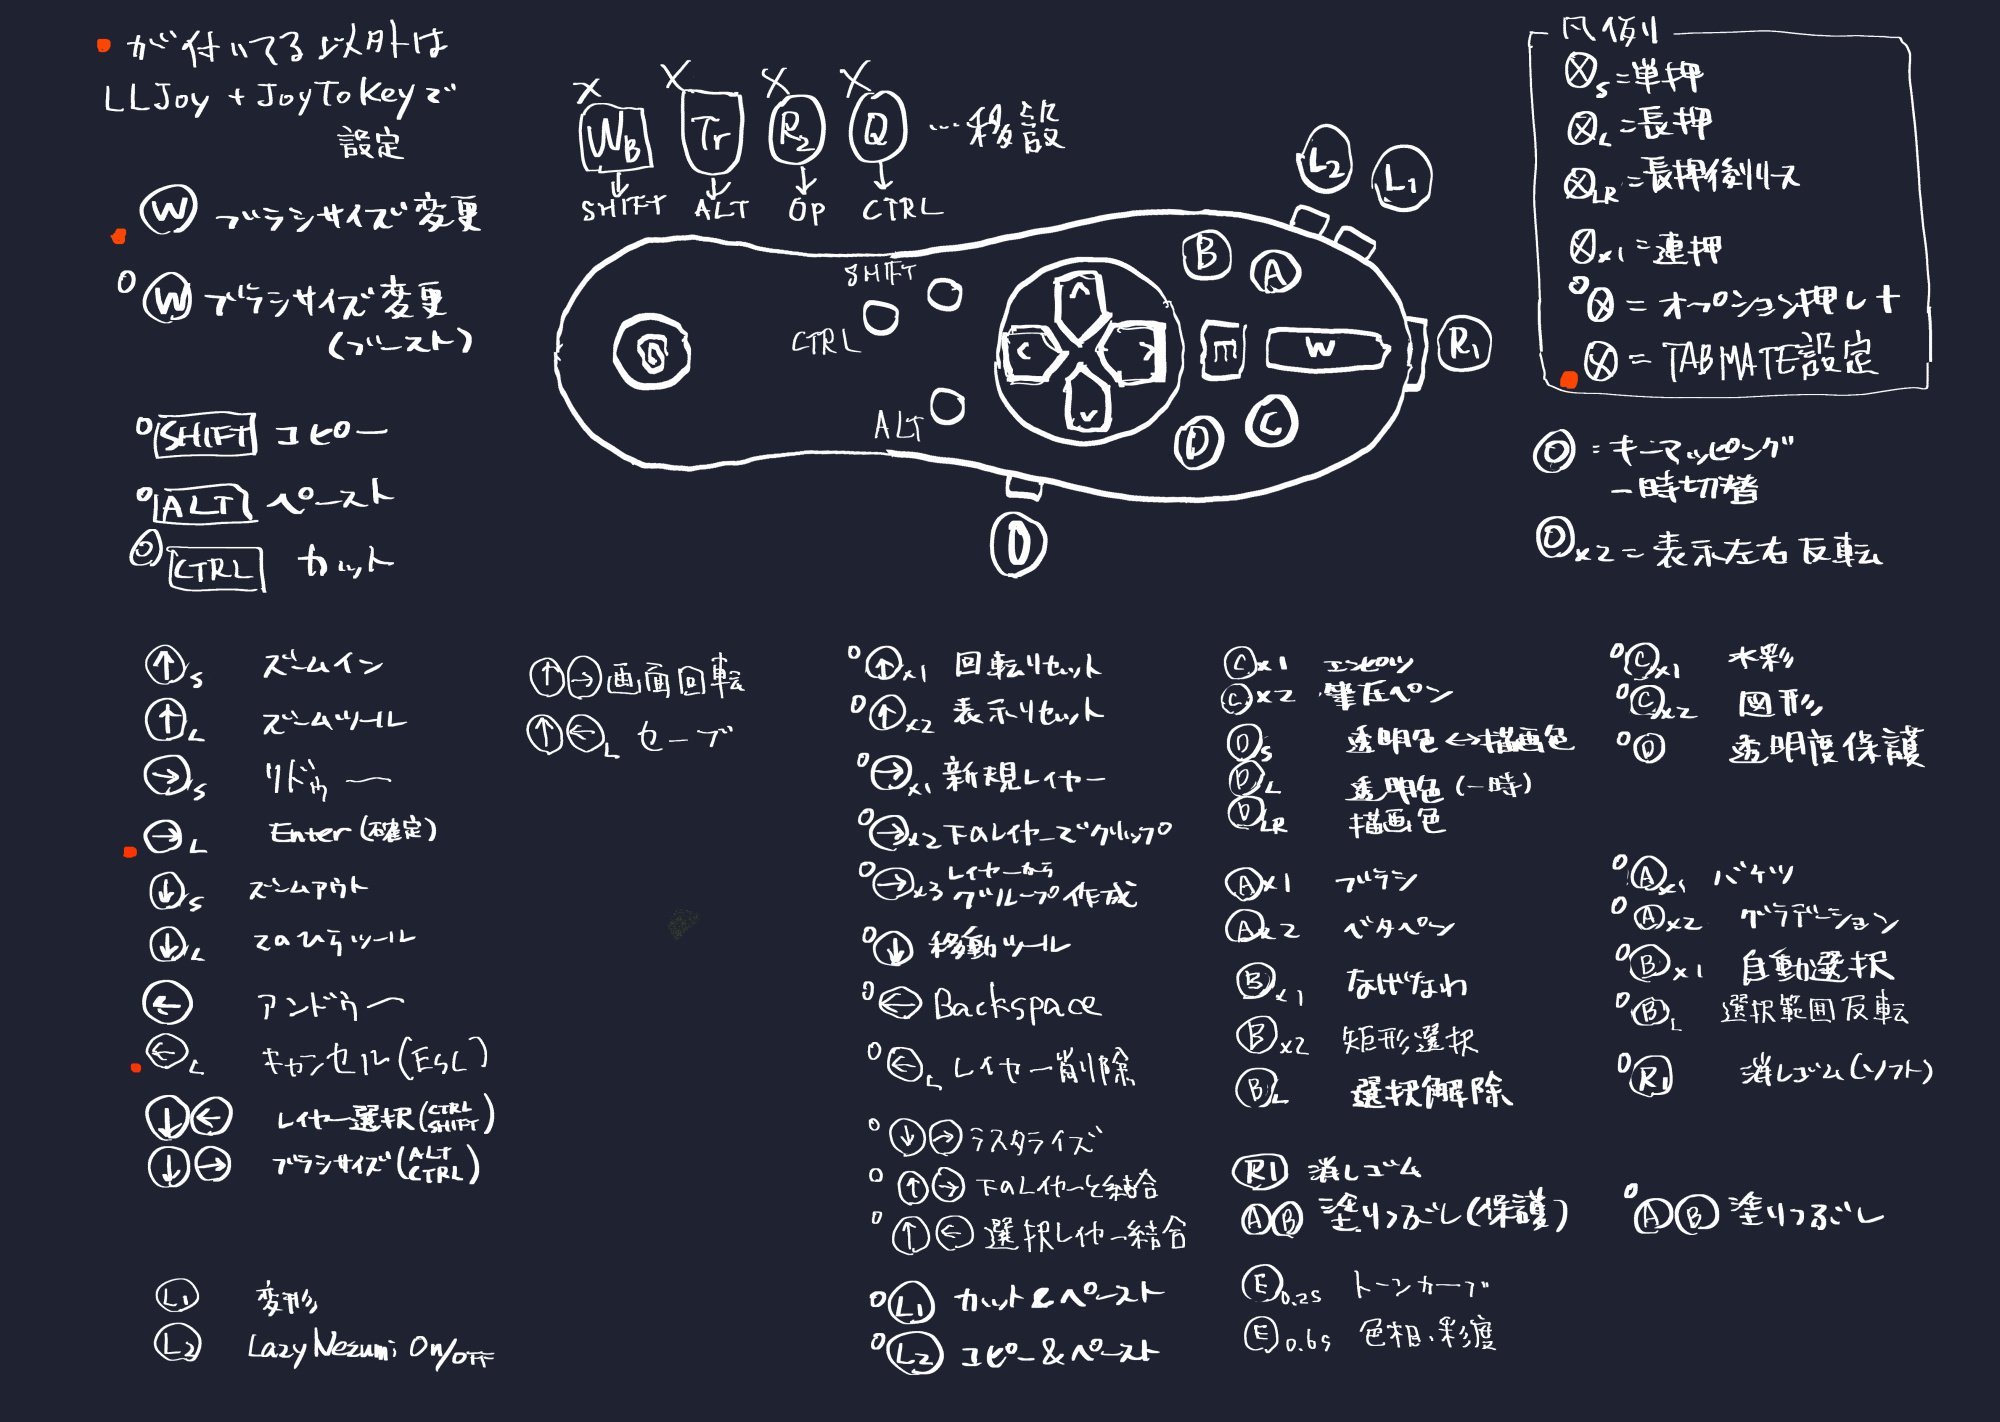 が付いてる以外は
LLJoy + JoyToKeyで
設定
W ブラシサイズ変更
O W ブラシサイズ変更
(ブースト)
O SHIFT コピー
O ALT ペースト
O CTRL カット
X X X X
WB Tr R2 Q …移設
SHIFT ALT OP CTRL
L2 L1
SHIFT
CTRL
ALT
B A
< ^ > v
E W R1
D C
O
凡例
XS=単押
XL=長押
XLR=長押後リリース
Xx1=連押
O X=オプション押し+
X=TABMATE設定
O=キーマッピング
一時切替
Ox2=表示左右反転
↑S ズームイン
↑L ズームツール
→S リドゥー
→L Enter(確定)
↓S ズームアウト
↓L てのひらツール
← アンドゥー
←L キャンセル(Esc)
↓← レイヤー選択(CTRL SHIFT)
↓→ ブラシサイズ(ALT CTRL)
L1 変形
L2 Lazy Nezumi On/OFF
↑→ 画面回転
↑←L セーブ
O↑x1 回転リセット
O↑x2 表示リセット
O→x1 新規レイヤー
O→x2 下のレイヤーでクリップ
O→x3 レイヤーから
グループ作成
O↓ 移動ツール
O← Backspace
O←L レイヤー削除
O↓→ ラスタライズ
O↑→ 下のレイヤーと結合
O↑← 選択レイヤー結合
O L1 カット&ペースト
O L2 コピー&ペースト
Cx1 エンピツ
Cx2 筆圧ペン
DS 透明色↔描画色
DL 透明色(一時)
DLR 描画色
Ax1 ブラシ
Ax2 ベタペン
Bx1 なげなわ
Bx2 矩形選択
BL 選択解除
R1 消しゴム
AB 塗りつぶし(保護)
E0.2s トーンカーブ
E0.6s 色相・彩度
O Cx1 水彩
O Cx2 図形
O D 透明度保護
O Ax1 バケツ
O Ax2 グラデーション
O Bx1 自動選択
O BL 選択範囲反転
O R1 消しゴム(ソフト)
O AB 塗りつぶし